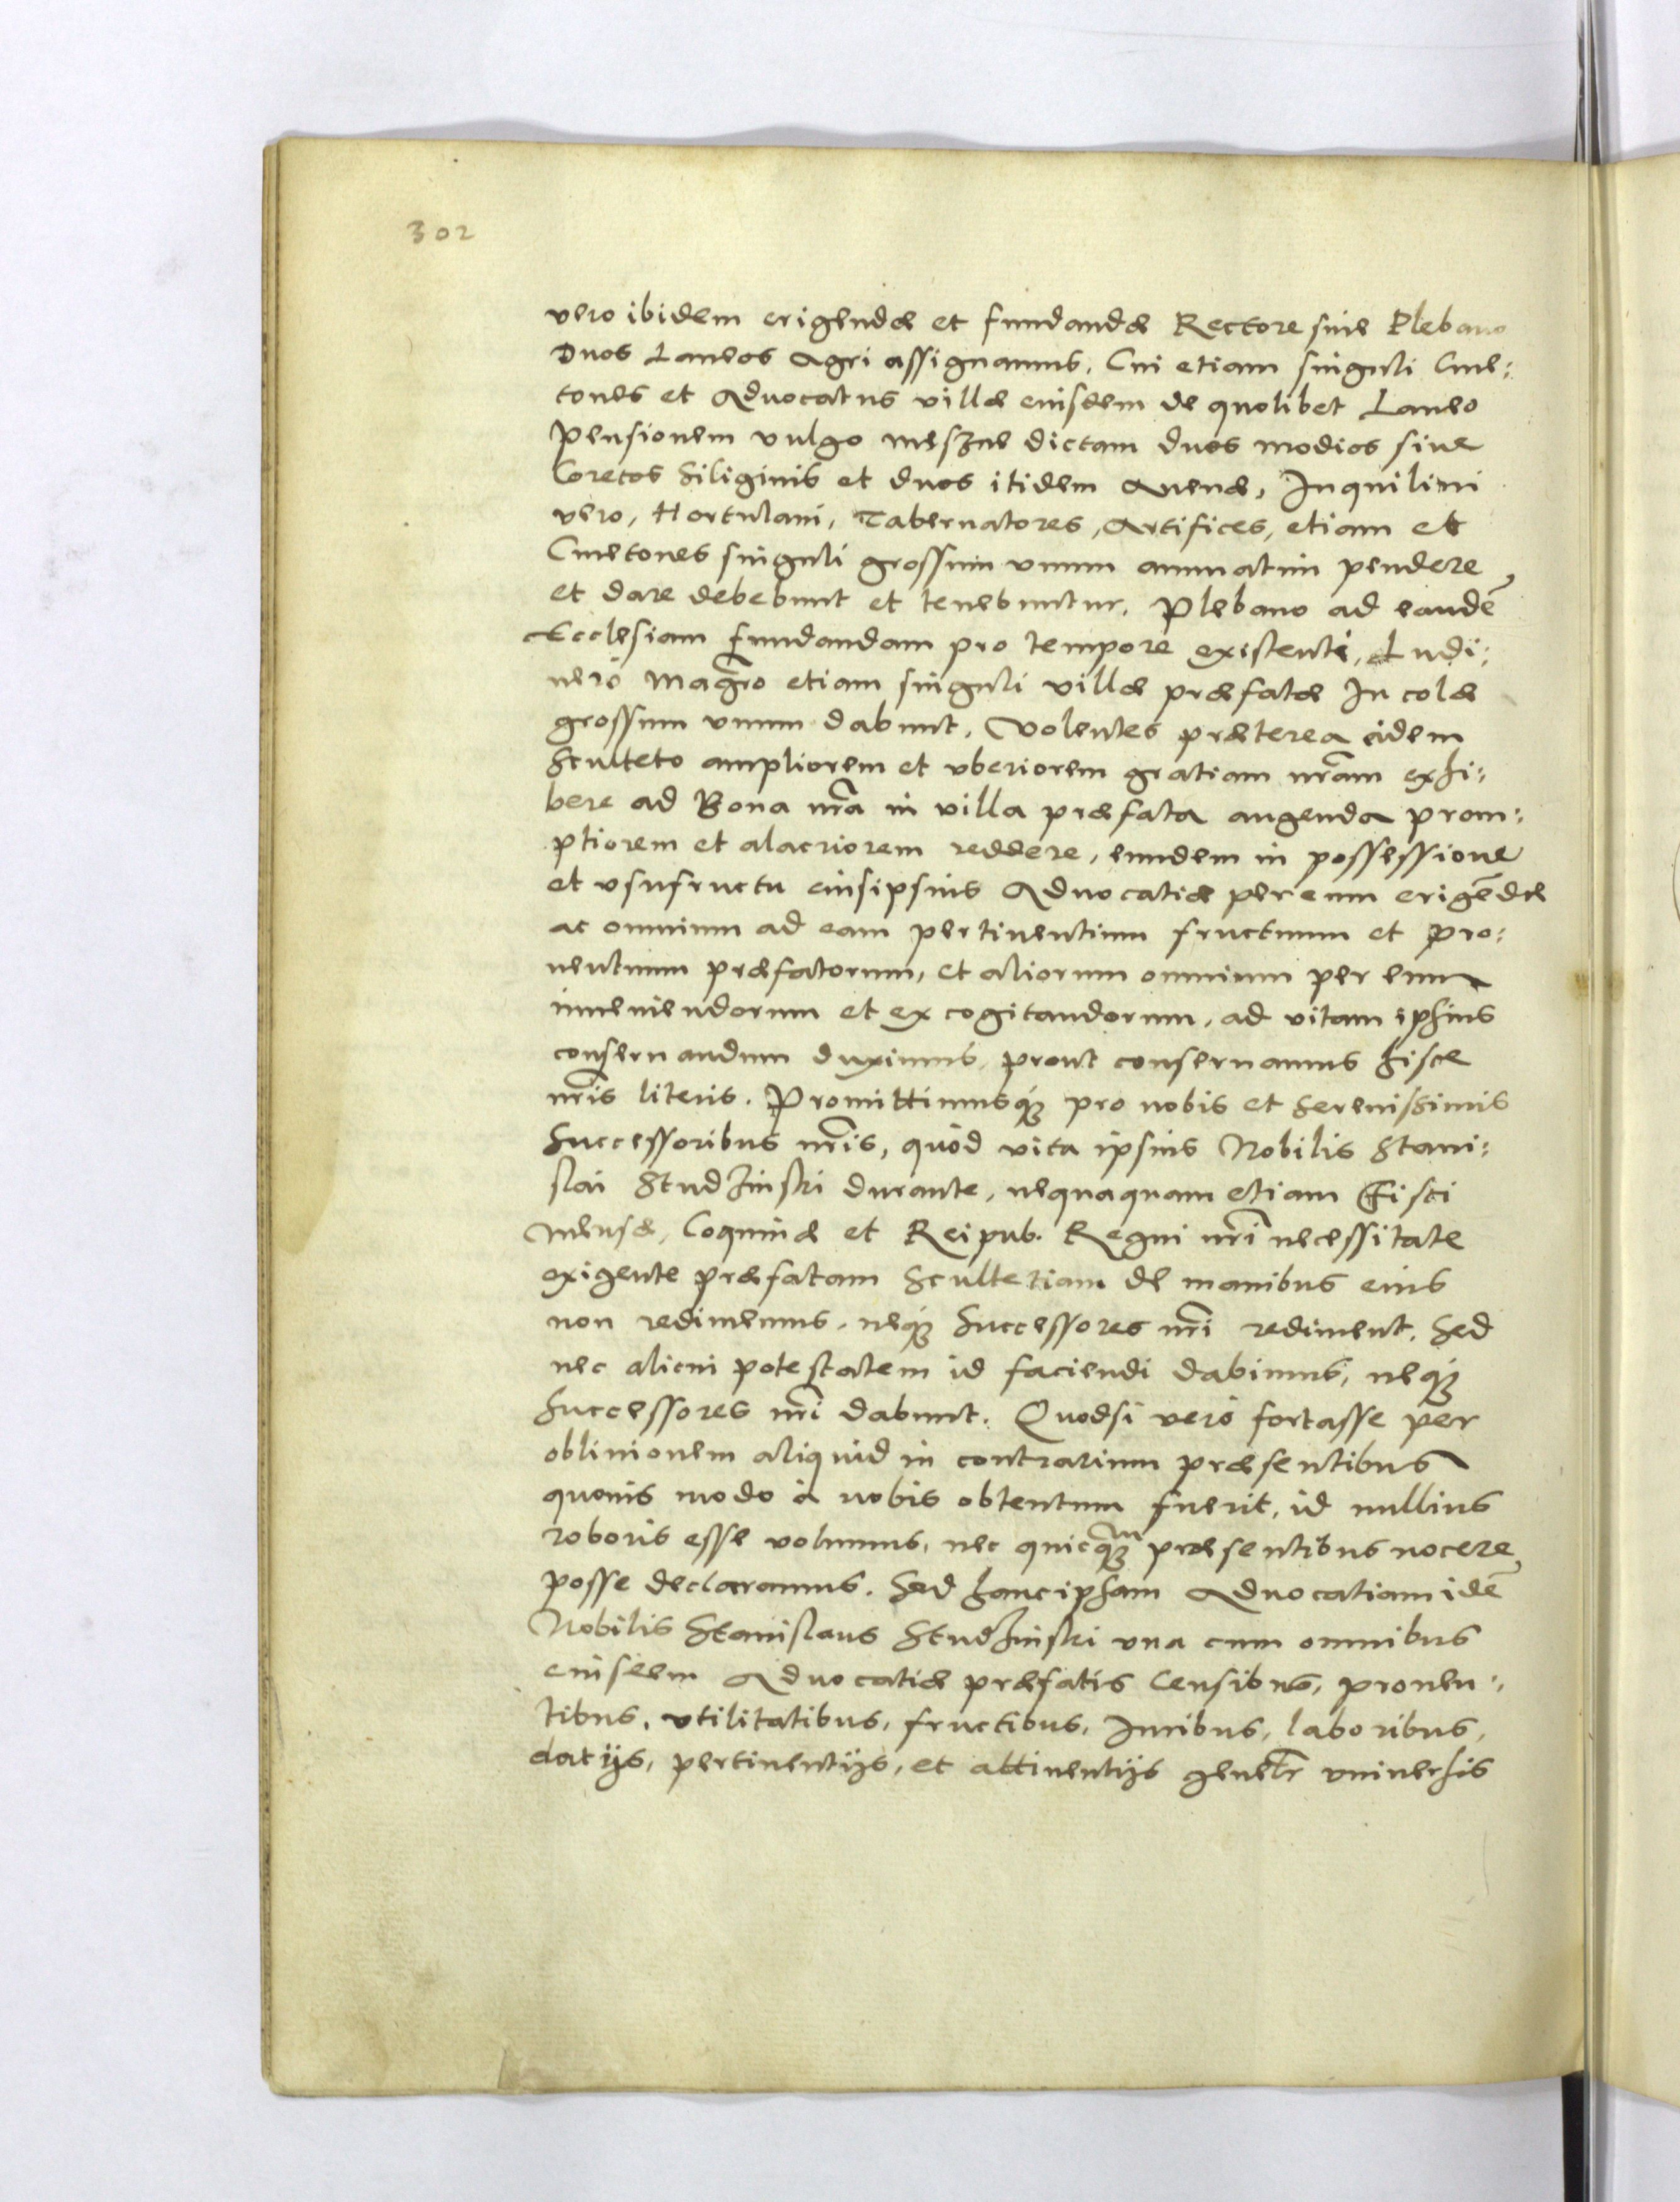 302
vero ibidem erigendæ et fundandæ Rectore siue Plebano
Duos Laneos Agri assignamus. Cui etiam singuli Cme:
tones et Aduocatus villæ eiusdem de quolibet Laneo
Pensionem vulgo meszne dictam duos modios siue
Coretos Siliginis et duos itidem Auenæ, Inquilini
vero, Hortulani, Tabernatores, Artifices, etiam et
Cmetones singuli grossum vnum annuatim pendere
et dare debebunt et tenebuntur. Plebano ad eandē
Ecclesiam fundandam pro tempore existenti, Ludi:
uero Magr̃o etiam singuli villæ præfatæ Incolæ
grossum vnum dabunt. Volentes præterea eidem
Sculteto ampliorem et vberiorem gratiam nr̃am exhi:
bere ad Bona nr̃a in villa præfata augenda prom:
ptiorem et alacriorem reddere, eundem in possessione
et vsufructu eiusipsius Aduocatiæ per eum erigēdæ
ac omnium ad eam pertinentium fructuum et pro:
uentuum præfatorum, et aliorum omnium per eum
inueniendorum et excogitandorum, ad vitam ipsius
conseruandum duximus, prout conseruamus hisce
nr̃is literis. Promittimusq́ꝫ pro nobis et Serenissimis
Successoribus nr̃is, quòd vita ipsius Nobilis Stani:
slai Studzinski durante, nequaquam etiam Fisci
Mensæ, Coquinæ et Reipub. Regni nr̃i necessitate
exigente præfatam Scultetiam de manibus eius
non redimemus, neq́ꝫ Successores nr̃i rediment. Sed
nec alicui potestatem id faciendi dabimus, neq́ꝫ
Successores nr̃i dabunt. Quodsi verò fortasse per
obliuionem aliquid in contrarium præsentibus
quouis modo à nobis obtentum fuerit, id nullius
roboris esse volumus, nec quicq́ꝫm præsentibus nocere
posse declaramus. Sed hanc ipsam Aduocatiam idē
Nobilis Stanislaus Studzinski vna cum omnibus
eiusdem Aduocatiæ præfatis Censibus, prouen:
tibus, vtilitatibus, fructibus, Iuribus, laboribus,
datijs, pertinentijs, et attinentijs genelr̃ vniuersis